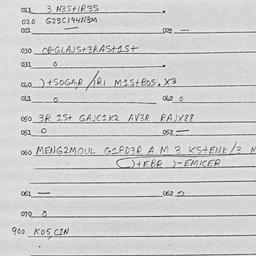 011 3 N3S+IR3S
020 G23C194N3M
021 — 022 —
030 C8-GLAJS+3RAS+1S+
031 0
040 )+SOGAR/IRI M1S+BOS. X3
041 0 042 0
050 3R 1S+ GAJC1K2 AV3R RAJX88
051 0 052 —
060 MENG2MOUL G1PD3R A M 3 KS+ENK/3 M
)+EBR )-EMICER
061 — 062 0
070 0
900 KO5,C1N